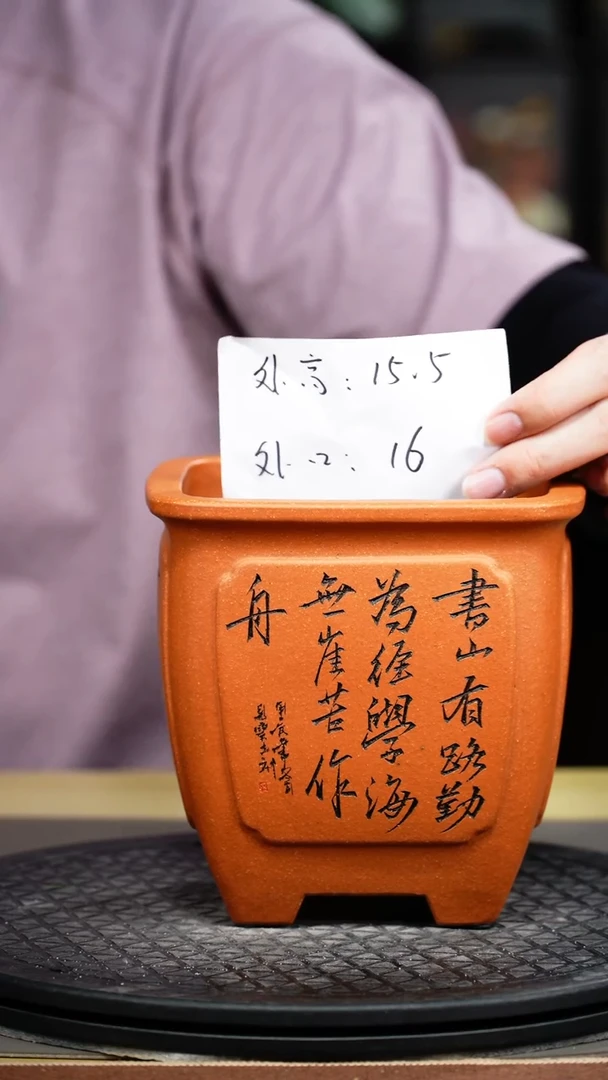 外高：15.5
外口：16
書山有路勤
為徑學海
無崖苦作
舟